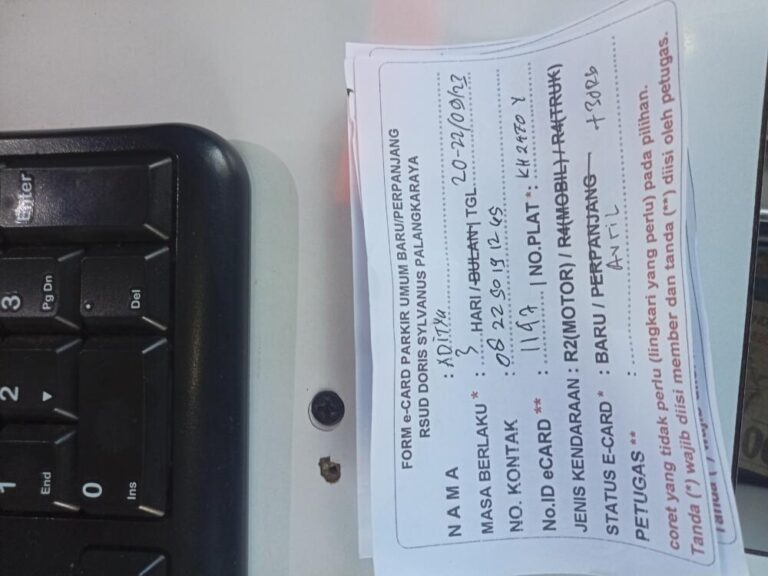 FORM e-CARD PARKIR UMUM BARU/PERPANJANG
RSUD DORIS SYLVANUS PALANGKARAYA
N A M A : ADITYA
MASA BERLAKU * : 3 HARI / BULAN | TGL. 20-22/09/23
NO. KONTAK : 08 22 50 19 12 45
No.ID eCARD ** : 1197 | NO.PLAT * : KH 2470 Y
JENIS KENDARAAN : R2(MOTOR) / R4(MOBIL) / R4(TRUK)
STATUS E-CARD * : BARU / PERPANJANG
PETUGAS ** :
coret yang tidak perlu (lingkari yang perlu) pada pilihan.
Tanda (*) wajib diisi member dan tanda (**) diisi oleh petugas.
Enter
3
Pg Dn
.
Del
2
1
End
0
Ins